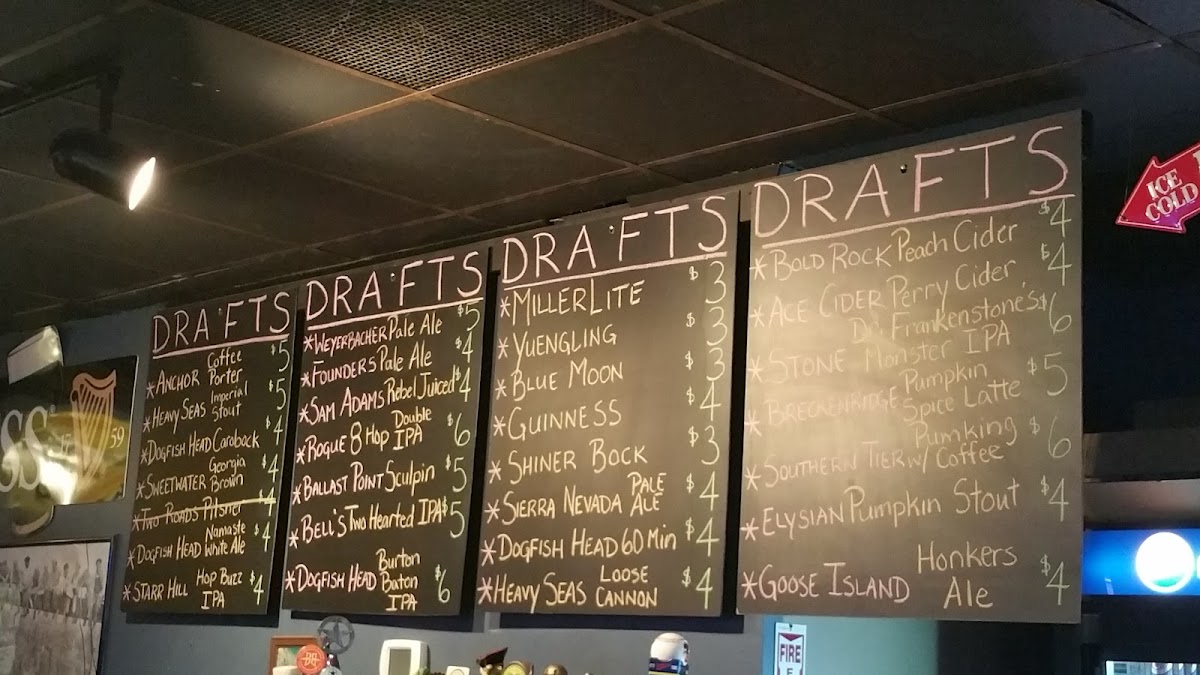 DRAFTS
*ANCHOR Coffee Porter $5
*HEAVY SEAS Imperial Stout $5
*DOGFISH HEAD Caroback $4
*SWEETWATER Georgia Brown $4
*TWO ROADS Pilsner $4
*DOGFISH HEAD Namaste White Ale $4
*STARR HILL Hop Buzz IPA $4
DRAFTS
*WEYERBACHER Pale Ale $5
*FOUNDERS Pale Ale $4
*SAM ADAMS Rebel Juiced $4
*ROGUE 8 Hop Double IPA $6
*BALLAST POINT Sculpin $5
*BELL'S Two Hearted IPA $5
*DOGFISH HEAD Burton Baton IPA $6
DRAFTS
*MILLER LITE $3
*YUENGLING $3
*BLUE MOON $3
*GUINNESS $4
*SHINER BOCK $3
*SIERRA NEVADA PALE ALE $4
*DOGFISH HEAD 60 Min $4
*HEAVY SEAS LOOSE CANNON $4
DRAFTS
*BOLD ROCK Peach Cider $4
*ACE CIDER Perry Cider $4
*STONE Dr. Frankenstone's Monster IPA $6
*BRECKENRIDGE Pumpkin Spice Latte $5
*SOUTHERN TIER Pumking w/ Coffee $6
*ELYSIAN Pumpkin Stout $4
*GOOSE ISLAND Honkers Ale $4
ICE
COLD
SS
17 59
FIRE